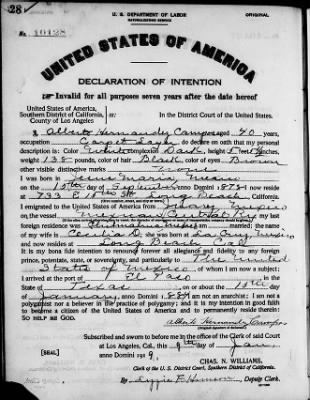 28
U. S. DEPARTMENT OF LABOR
NATURALIZATION SERVICE
ORIGINAL
No. 10128
UNITED STATES OF AMERICA
DECLARATION OF INTENTION
Invalid for all purposes seven years after the date hereof
United States of America,
Southern District of California,
County of Los Angeles
In the District Court of the United States.
I, Alberto Hernandez Campos aged 40 years,
occupation Carpet Layer, do declare on oath that my personal
description is: Color White complexion Dark, height 5 feet inches,
weight 138 pounds, color of hair Black, color of eyes Brown
other visible distinctive marks None
I was born in Maria, Mexico
on the 15th day of September, anno Domini 1878; I now reside
at 733 E Long Beach, Calif.
I emigrated to the United States of America from Juarez, Mexico
on the vessel Mexican Central Ry; my last
foreign residence was Chihuahua, Mexico; I am married; the name
of my wife is D. she was born at La Cruz, Mexico
and now resides at Long Beach, Cal
It is my bona fide intention to renounce forever all allegiance and fidelity to any foreign
prince, potentate, state, or sovereignty, and particularly to The United
States of Mexico, of whom I am now a subject;
I arrived at the port of El Paso, in the
State of Texas, on or about the 15th day
of January, anno Domini 1884; I am not an anarchist; I am not a
polygamist nor a believer in the practice of polygamy; and it is my intention in good faith
to become a citizen of the United States of America and to permanently reside therein:
SO HELP ME GOD.
Alberto Hernandez Campos
(Original signature of declarant)
Subscribed and sworn to before me in the office of the Clerk of said Court
at Los Angeles, Cal., this 9th day of Jan.
anno Domini 1919.
[SEAL]
CHAS. N. WILLIAMS,
Clerk of the U. S. District Court, Southern District of California.
By Deputy Clerk.